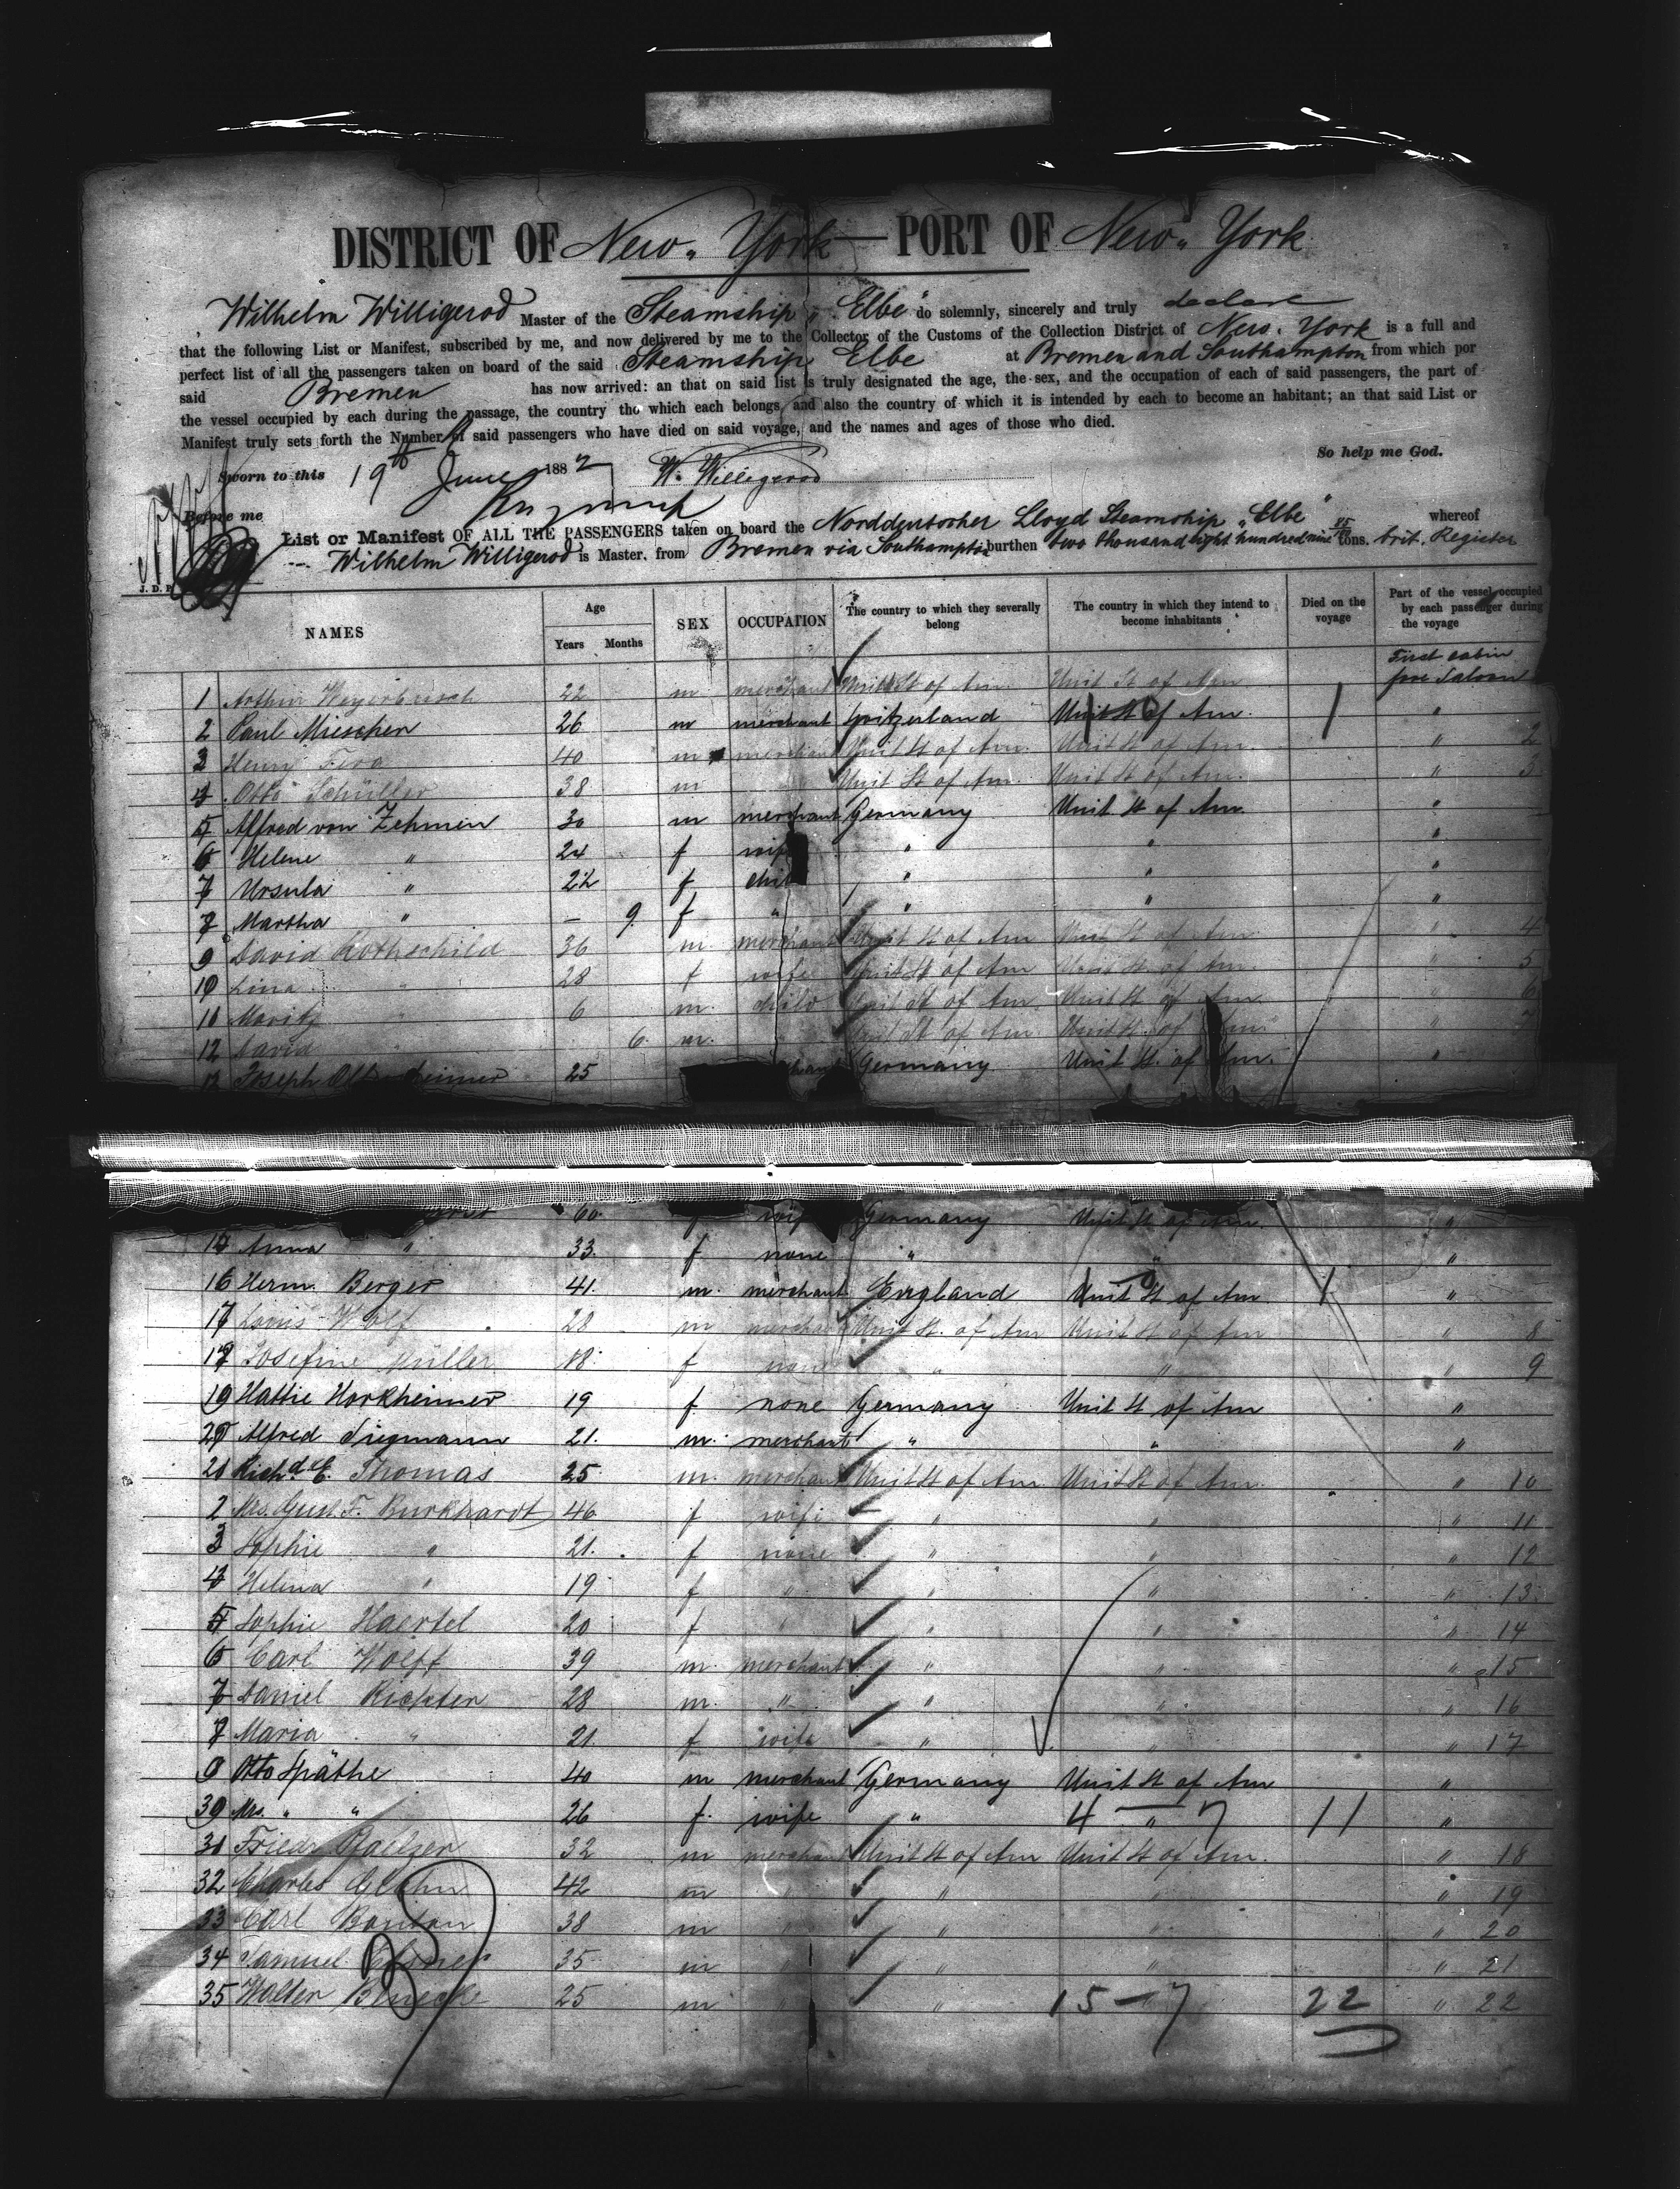 DISTRICT OF New York — PORT OF New York
Wilhelm Willigerod Master of the Steamship „Elbe" do solemnly, sincerely and truly declare
that the following List or Manifest, subscribed by me, and now delivered by me to the Collector of the Customs of the Collection District of New York is a full and
perfect list of all the passengers taken on board of the said Steamship Elbe at Bremen and Southampton from which por
said Bremen has now arrived: an that on said list is truly designated the age, the sex, and the occupation of each of said passengers, the part of
the vessel occupied by each during the passage, the country tho which each belongs, and also the country of which it is intended by each to become an habitant; an that said List or
Manifest truly sets forth the Number of said passengers who have died on said voyage, and the names and ages of those who died.
So help me God.
Sworn to this 19th June 1882 W. Willigerod
Before me
List or Manifest OF ALL THE PASSENGERS taken on board the Norddeutscher Lloyd Steamship „Elbe" whereof
Wilhelm Willigerod is Master, from Bremen via Southampton burthen two thousand eight hundred nine tons. brit. Register
J. D. P.
NAMES Age Years Months SEX OCCUPATION The country to which they severally belong The country in which they intend to become inhabitants Died on the voyage Part of the vessel occupied by each passenger during the voyage
First cabin
1 Arthur Weyerbusch 22 m merchant Unit St of Am Unit St of Am fore Saloon
2 Paul Miescher 26 m merchant Switzerland Unit St of Am. "
3 Henry 40 m merchant Unit St of Am. Unit St of Am. " 2
4 Otto Schüller 38 m Unit St of Am. Unit St of Am. " 3
5 Alfred von Zehmen 30 m merchant Germany Unit St of Am. "
6 Helene " 24 f wife " " "
7 Ursula " 2½ f child " " "
Martha " — 9. f " " " "
9 David Rothschild 36 m. merchant Unit St of Am Unit St of Am. " 4
10 Lina " 28 f wife Unit St of Am Unit St of Am. " 5
11 Moritz " 6 m. child Unit St of Am Unit St of Am. " 6
12 David " 6. m. " Unit St of Am. Unit St. of Am. " 7
Joseph 25 Germany Unit St. of Am. "
60. f wife Germany Unit St of Am. "
Anna " 33. f none " " "
16 Herm. Berger 41. m. merchant England Unit St of Am "
17 Louis Wolf 28 m merchant Unit St. of Am Unit St of Am " 8
Josefine Müller 18. f none " " " 9
19 Hattie Horkheimer 19 f none Germany Unit St of Am "
20 Alfred Siegmann 21. m. merchant " " "
Richd. E. Thomas 25 m. merchant Unit St of Am Unit St of Am. " 10
2 Mrs. Gust. F. Burkhardt 46 f wife " " " 11
3 Sophie " 21. f none " " " 12
4 Helena " 19 f " " " " 13
5 Sophie Haertel 20 f " " " " 14
6 Carl Wolff 39 m. merchant " " " 15
7 Daniel Richter 28 m. " " " " 16
Maria " 21 f wife " " " 17
9 Otto Späthe 40 m merchant Germany Unit St of Am "
30 Mrs. " " 26 f. wife " 4 — 7 11 "
31 Friedr 32 m merchant Unit St of Am Unit St of Am. " 18
32 Charles Glahn 42 m " " " " 19
33 Carl 38 m " " " " 20
34 Samuel 35 m " " " " 21
35 Walter 25 m " " 15 — 7 22 " 22